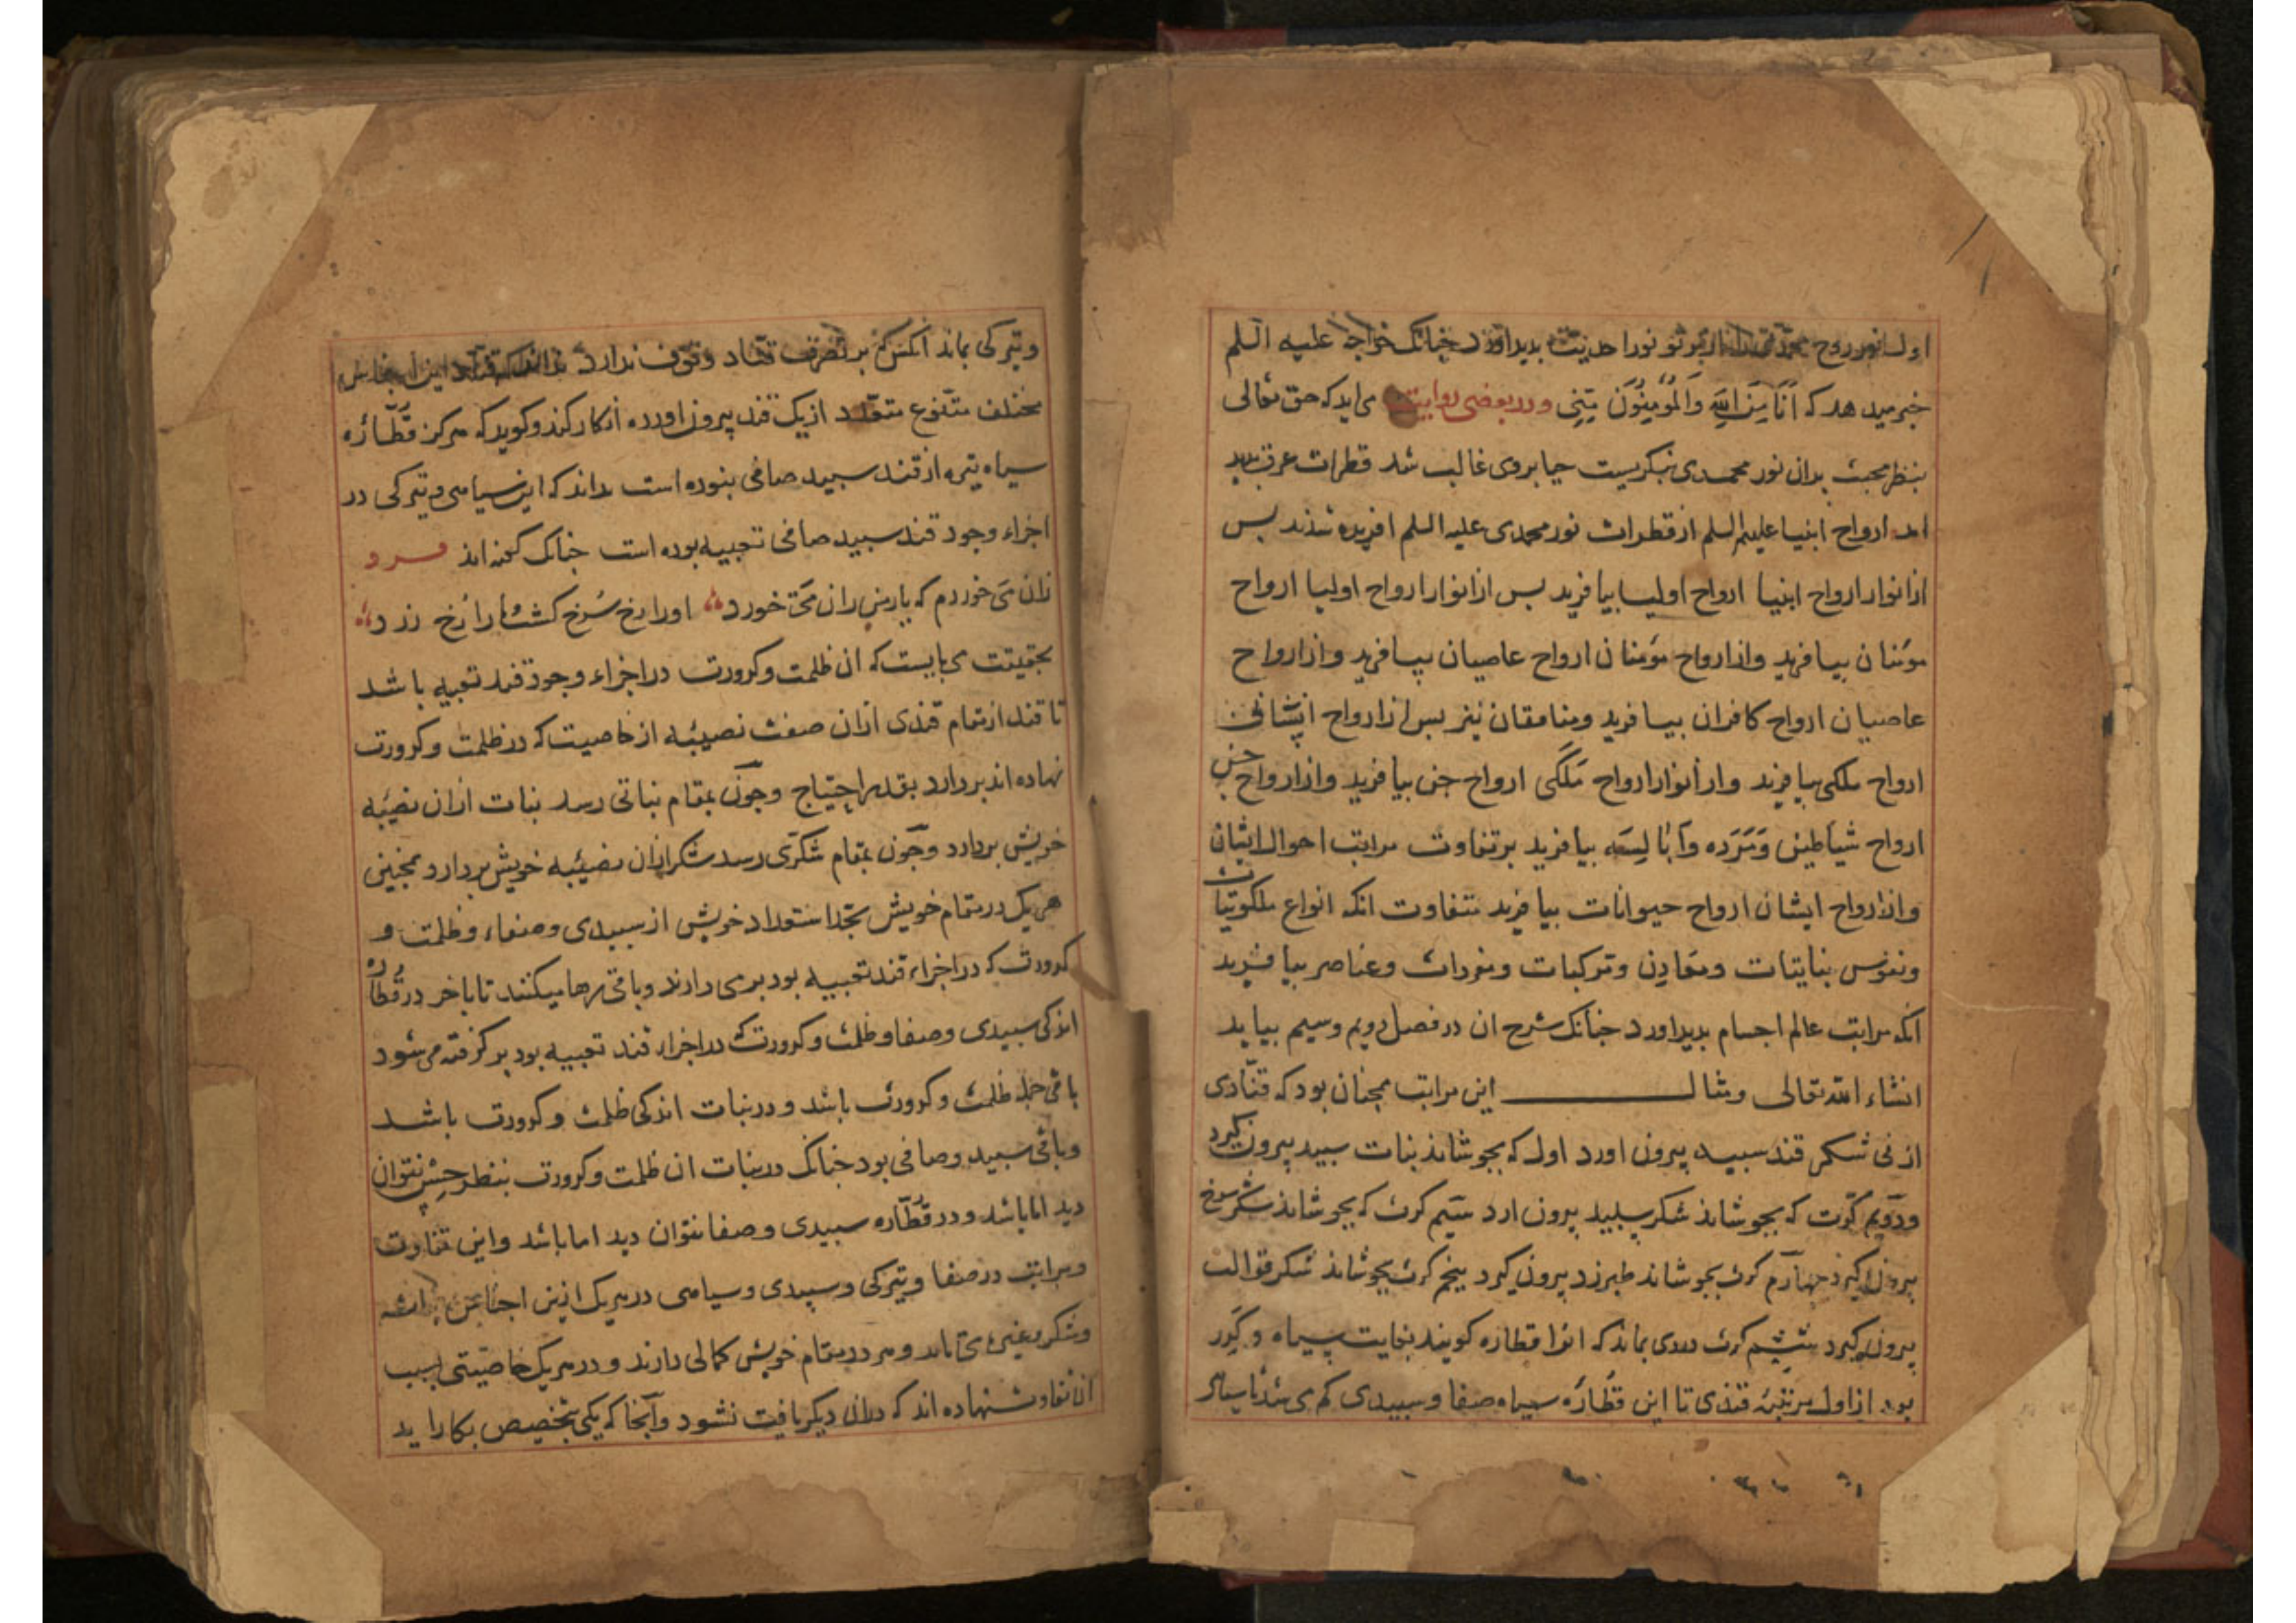 اول نور روح محمدی را از پرتو نور احدیت بدید اورد چنانک خواجه علیه السلم
خبر میدهد که اَنَا مِنَ اللّٰهِ وَالمُؤمِنُونَ مِنّی ودر بعضی روایت می اید که حق تعالی
بنظر محبت بدان نور محمدی نبکریست حیا بروی غالب شد قطرات عرق بدید
امد ارواح انبیا علیهم السلم از قطرات نور محمدی علیه السلم افریده شدند بس
از انوار ارواح انبیا ارواح اولیا بیافرید بس از انوار ارواح اولیا ارواح
مومنان بیافرید واز ارواح مومنان ارواح عاصیان بیافرید واز ارواح
عاصیان ارواح کافران بیافرید ومنافقان نیز بس از ارواح انسانی
ارواح ملکی بیافرید واز انوار ارواح مَلَکی ارواح جن بیافرید واز ارواح جن
ارواح شیاطین وَمَرَدَه واَبالِسَه بیافرید برتفاوت مراتب احوال ایشان
واز ارواح ایشان ارواح حیوانات بیافرید متفاوت انکه انواع ملکوتیات
ونفوس نباتیات ومعادِن ومرکبات ومفردات وعناصر بیافرید
انکه مراتب عالم اجسام بدید اورد جنانک شرح ان در فصل دویم وسیم بیاید
انشاء الله تعالی ومثال این مراتب همجنان بود که قنّادی
از نی شکر قند سبید بیرون اورد اول که بجوشاند نبات سبید بیرون کیرد
ودویم کرّت که بجوشاند شکر سبید بیرون ارد سیم کرت که بجوشاند شکر سرخ
بیرون کیرد جهارم کرت بجوشاند طبرزد بیرون کیرد بنجم کرت بجوشاند شکر قوالب
بیرون کیرد ششم کرت دردی بماند که انرا قطاره کویند بغایت سیاه وکَدِر
بود از اول مرتبهٔ قندی تا این قُطاره سیاه صفا وسبیدی کم می شد تا سیاهی
وتیرکی بماند انکس که بر تصرف قنّاد وقوف ندارد نداند که قنّاد این اجناس
مختلف متنوع متعدد از یک قند بیرون اورده انکار کند وکوید که هرکز قُطّاره
سیاه تیره از قند سبید صافی بنوده است نداند که این سیاهی وتیرکی در
اجزاء وجود قند سبید صافی تعبیه بوده است جنانک کفته اند فرد
زان می خوردم که یار من زان می خورد اورا رخ سُرخ کشت مارا رُخ زرد
بحقیقت می بایست که ان ظلمت وکدورت در اجزاء وجود قند تعبیه باشد
تا قند از مقام قندی ازان صفت نصیبه از خاصیت که در ظلمت وکدورت
نهاده اند بردارد بقدر احتیاج وجون بمقام نباتی رسد نبات ازان نصیبه
خویش بردارد وجون بمقام شکری رسد شکر ازان نصیبه خویش بردارد همجنین
هریک در مقام خویش بحد استعداد خویش از سبیدی وصفاء وظلمت و
کدورت که در اجزاء قند تعبیه بود برمی دارند وباقی رها میکنند تا باخر در قُطّاره
اندکی سبیدی وصفا وظلمت وکدورت که در اجزاء قند تعبیه بود بر کرفته می شود
باقی جمله ظلمت وکدورت باشد ودر نبات اندکی ظلمت وکدورت باشد
وباقی سبید وصافی بود جنانک در نبات ان ظلمت وکدورت بنظر حِسّ نتوان
دید اما باشد ودر قُطّاره سبیدی وصفا نتوان دید اما باشد واین تفاوت
ومراتب در صفا وتیرکی وسبیدی وسیاهی در هریک ازین اجناس
وشکر وغیره می باید وهر در مقام خویش کمالی دارند ودر هریک خاصیّتی بسبب
ان تفاوت نهاده اند که دران دیکر یافت نشود وآنجا که یکی بتخصیص بکار اید